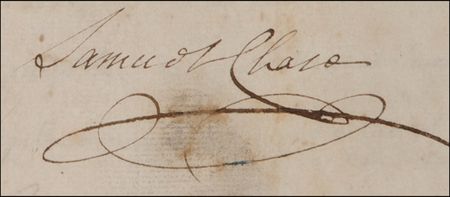 Samuel Chase